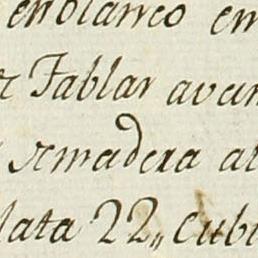 enblanco en
Tablar avan
madera al
lata 22,, cubi